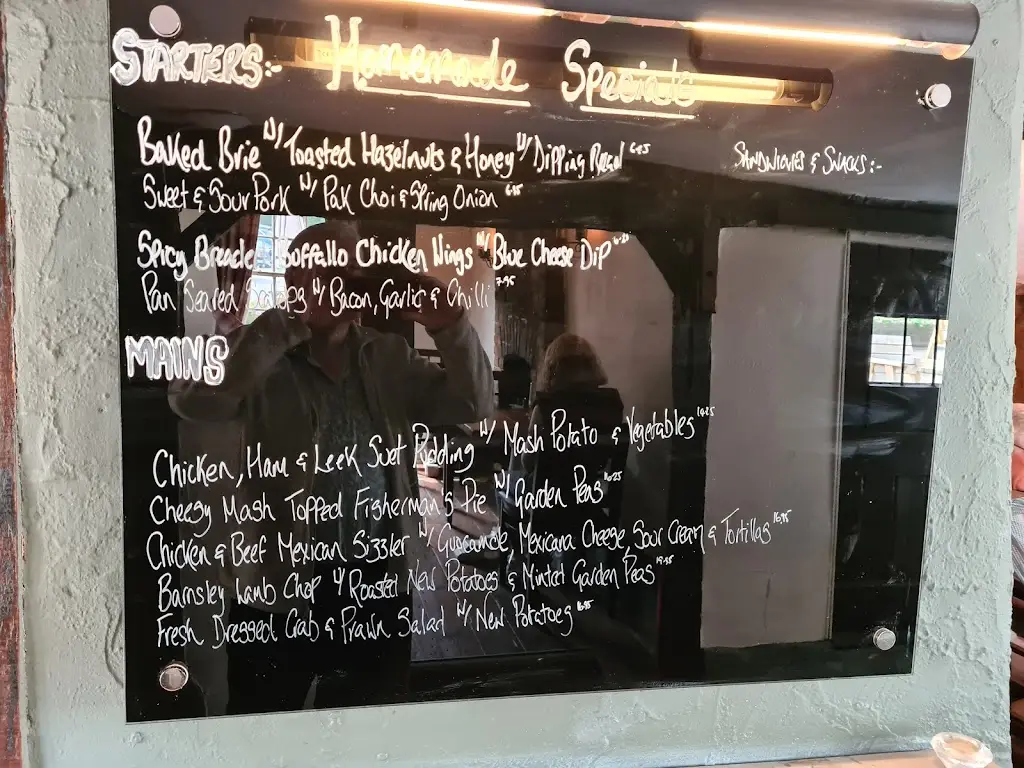 STARTERS:- Homemade Specials
Baked Brie W/ Toasted Hazelnuts & Honey W/ Dipping Bread
Sandwiches & Snacks:-
Sweet & Sour Pork W/ Pak Choi & Spring Onion
Spicy Breaded Buffallo Chicken Wings W/ Blue Cheese Dip
Pan Seared Scallops W/ Bacon, Garlic & Chilli 7.95
MAINS
Chicken, Ham & Leek Suet Pudding W/ Mash Potato & Vegetables
Cheesy Mash Topped Fisherman's Pie W/ Garden Peas
Chicken & Beef Mexican Sizzler W/ Guacamole, Mexicana Cheese, Sour Cream & Tortillas 16.95
Barnsley Lamb Chop W/ Roasted New Potatoes & Minted Garden Peas
Fresh Dressed Crab & Prawn Salad W/ New Potatoes